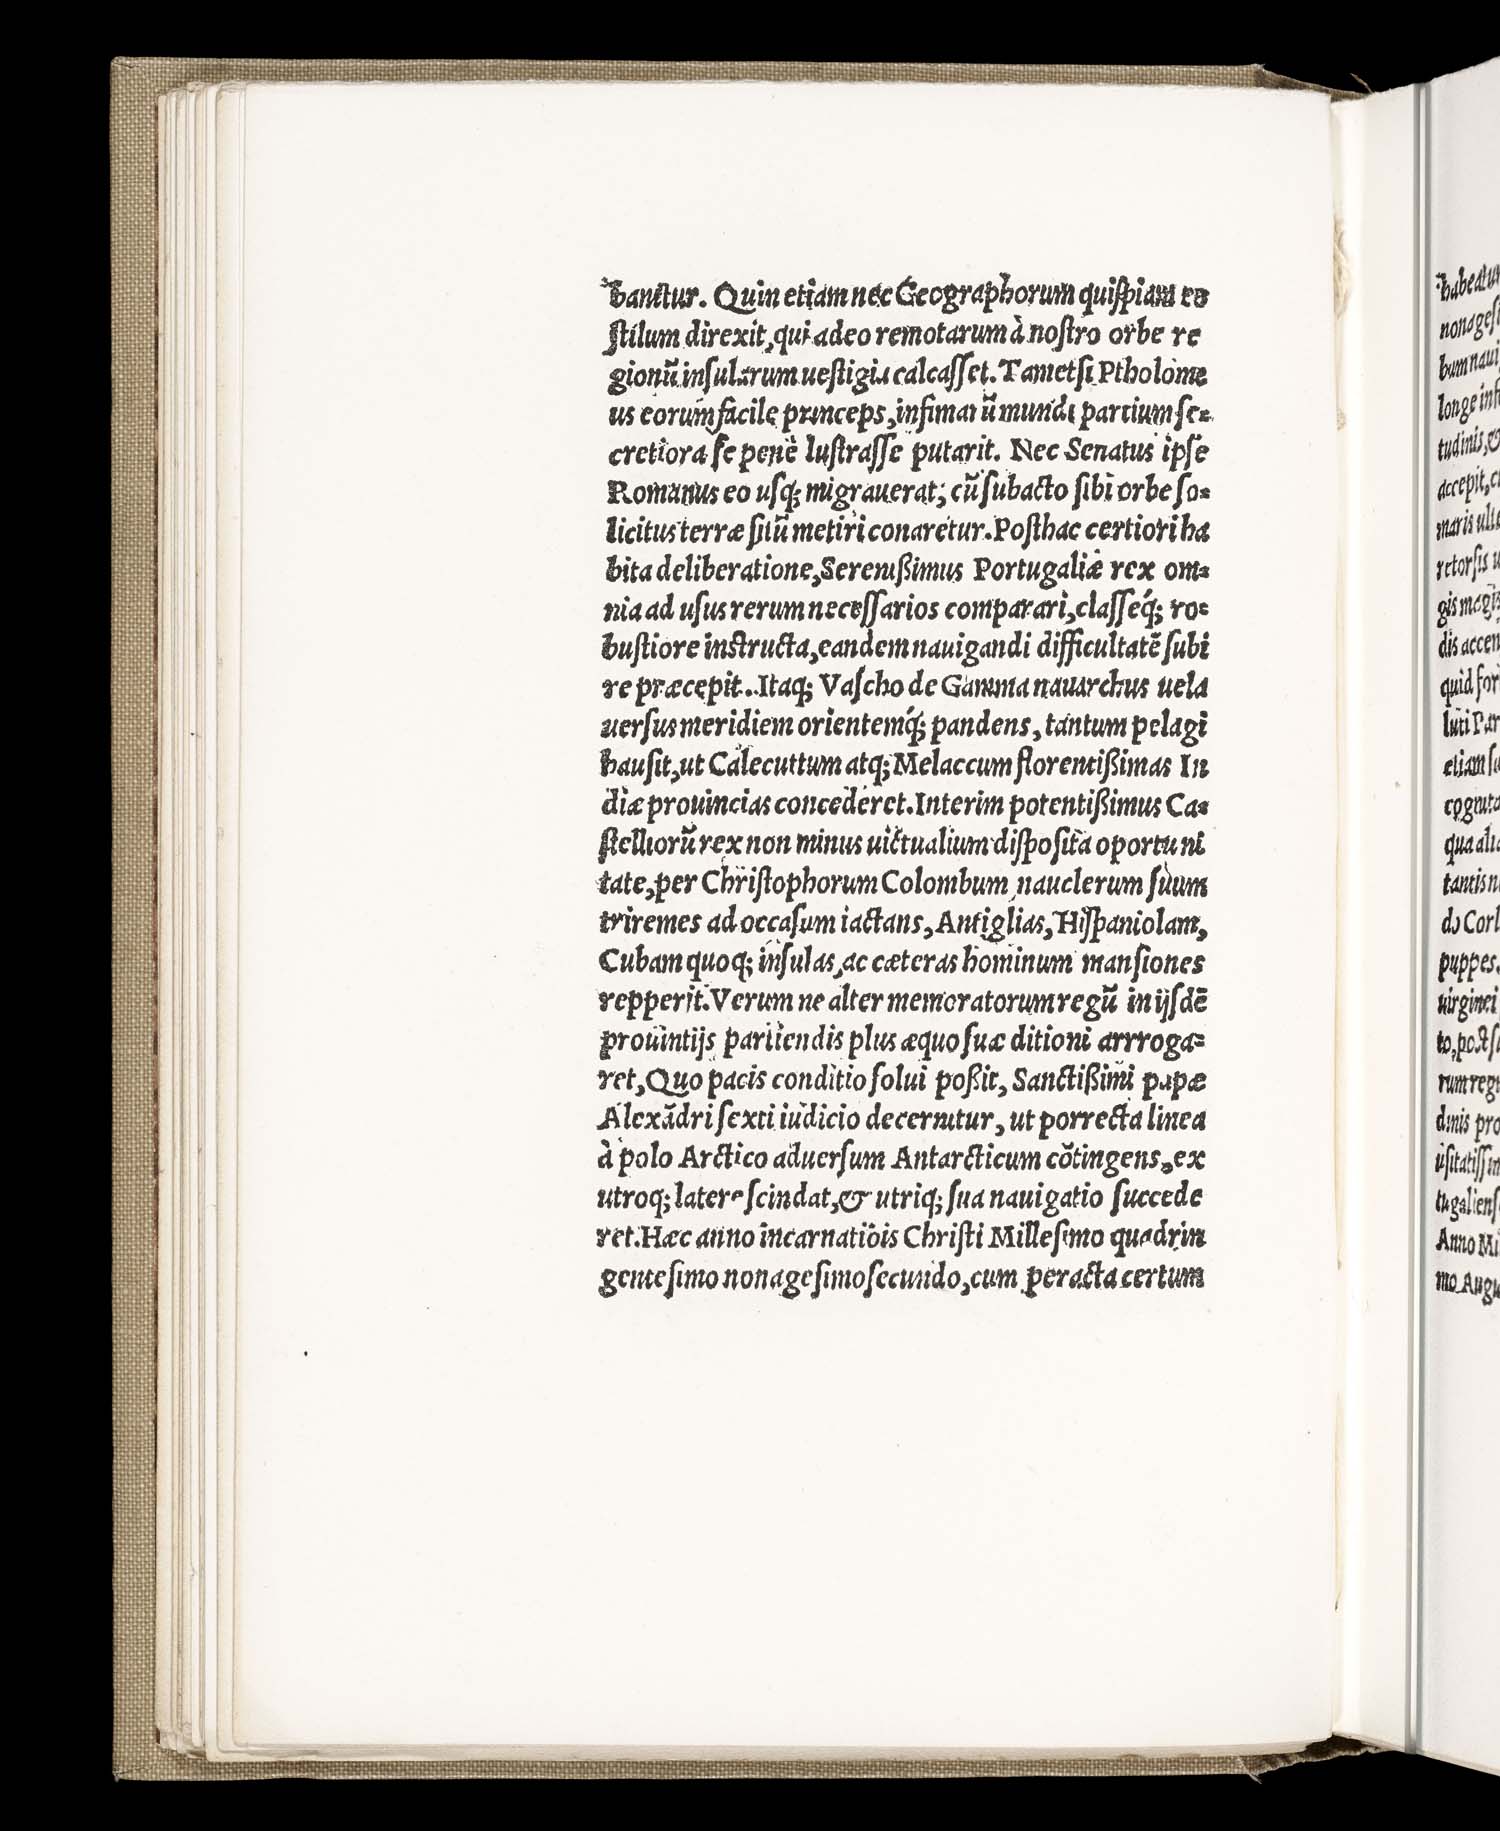 bantur. Quin etiam nec Geographorum quiſpiam eo
ſtilum direxit, qui adeo remotarum à noſtro orbe re
gionũ inſularum ueſtigia calcaſſet. Tametſi Ptholome
us eorum facile princeps, infimarũ mundi partium ſe-
cretiora ſe penè luſtraſſe putarit. Nec Senatus ipſe
Romanus eo uſq; migrauerat; cũ ſubacto ſibi orbe ſo-
licitus terræ ſitũ metiri conaretur. Poſthac certiori ha
bita deliberatione, Sereniſſimus Portugaliæ rex om-
nia ad uſus rerum neceſſarios comparari, claſſeq́; ro-
buſtiore inſtructa, eandem nauigandi difficultatẽ ſubi
re præcepit. Itaq; Vaſcho de Gamma nauarchus uela
uerſus meridiem orientemq́; pandens, tantum pelagi
hauſit, ut Calecuttum atq; Melaccum florentißimas In
diæ prouincias concederet. Interim potentißimus Ca-
ſtelliorũ rex non minus uictualium diſpoſita oportuni
tate, per Chriſtophorum Colombum nauclerum ſuum
triremes ad occaſum iactans, Antiglias, Hiſpaniolam,
Cubam quoq; inſulas, ac cæteras hominum manſiones
repperit. Verum ne alter memoratorum regũ in ijſdẽ
prouintijs partiendis plus æquo ſuæ ditioni arrroga-
ret, Quo pacis conditio ſolui poßit, Sanctißimi papæ
Alexãdri ſexti iudicio decernitur, ut porrecta linea
à polo Arctico aduerſum Antarcticum cõtingens, ex
utroq; latere ſcindat, & utriq; ſua nauigatio ſuccede
ret. Hæc anno incarnatiõis Chriſti Milleſimo quadrin
genteſimo nonageſimo ſecundo, cum peracta certum